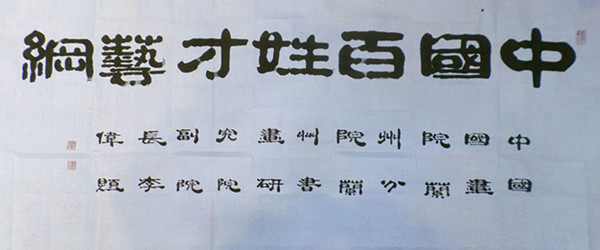 中國百姓才藝網
中國國畫院蘭州分院蘭州書畫研究院副院長李偉題